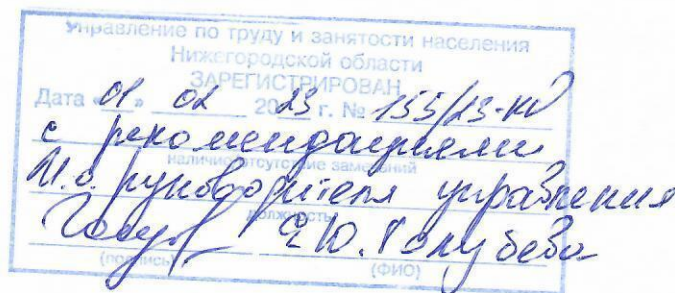 Управление по труду и занятости населения
Нижегородской области
ЗАРЕГИСТРИРОВАН
Дата «01» 02 2023 г. № 155/23-КД
с рекомендациями
наличие/отсутствие замечаний
И.о. руководителя управления
должность
Ю. Голубева
(подпись) (ФИО)